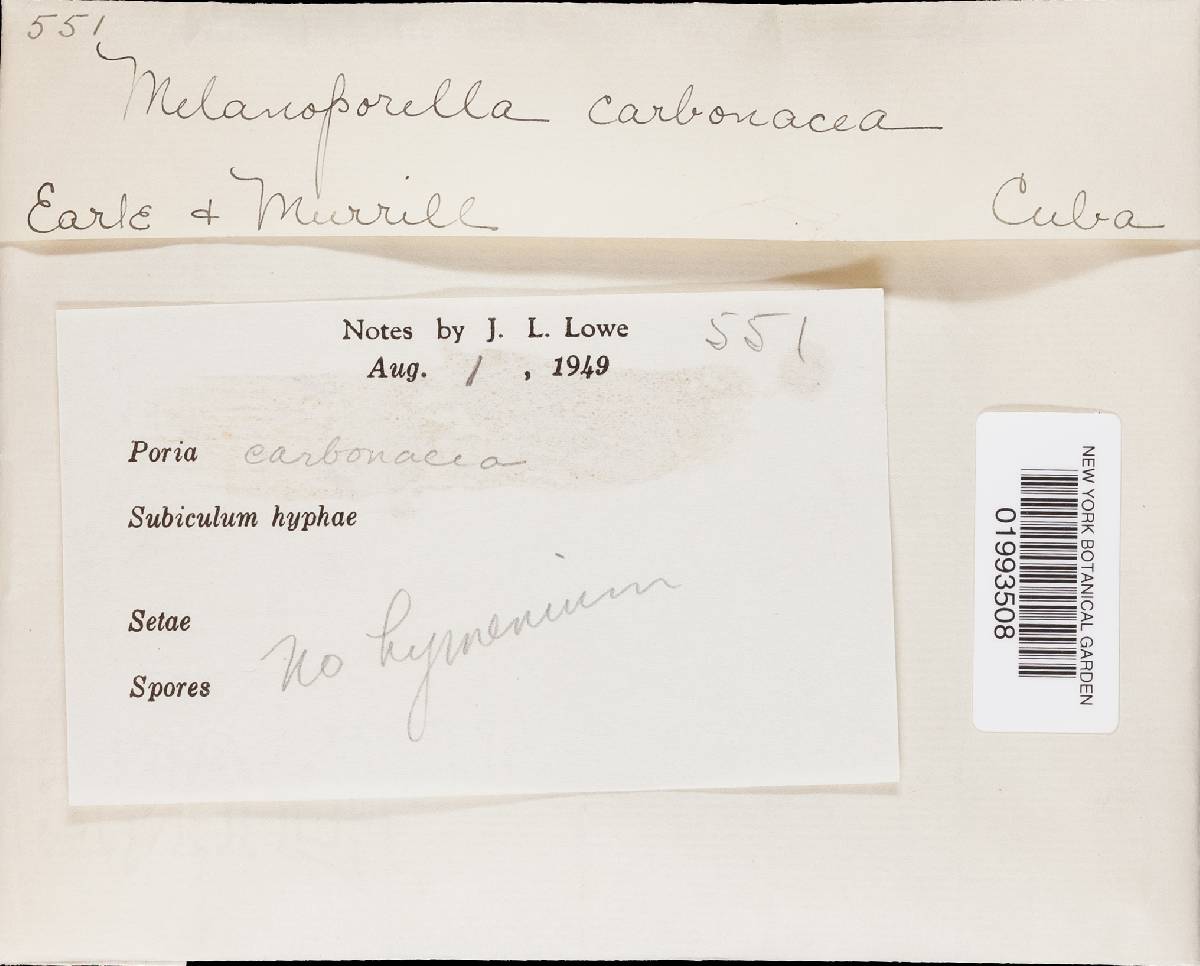 551
Melanoporella carbonacea
Earle & Murrill Cuba
Notes by J. L. Lowe 551
Aug. 1, 1949
Poria carbonacea
Subiculum hyphae
Setae
Spores No hymenium
NEW YORK BOTANICAL GARDEN
01993508